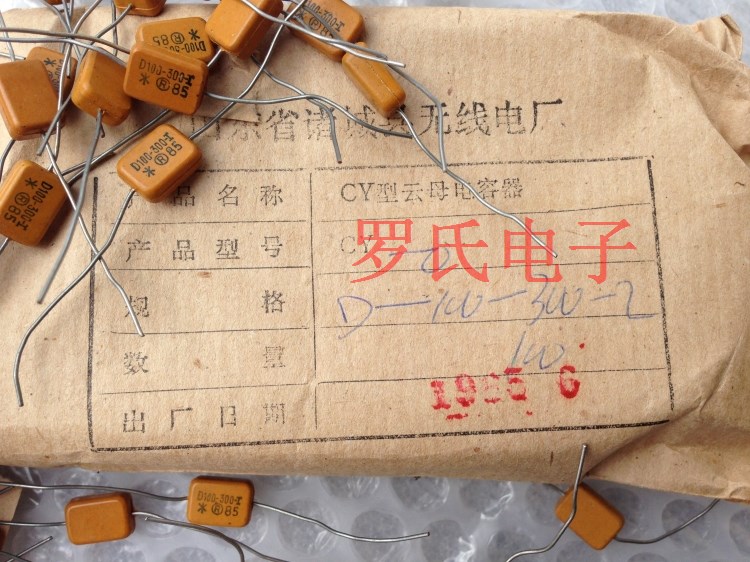 D100-300-I
85
D100-300-I
* Ⓡ 85
D100-300-I
* Ⓡ 85
D100-300-I
* Ⓡ 85
山东省诸城县无线电厂
产品名称 CY型云母电容器
产品型号 CY-0
罗氏电子
规格 D-100-300-2
数量 100
出厂日期 1985 6
D100-300-I
* Ⓡ 85